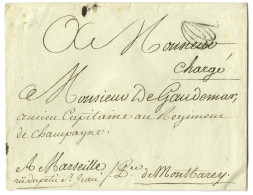 A Monsieur
Chargé
A Monsieur De Gaudemar,
ancien Capitaine au Regiment
de Champagne.
A Marseille
rue du petit St Jean /. De Montbarey